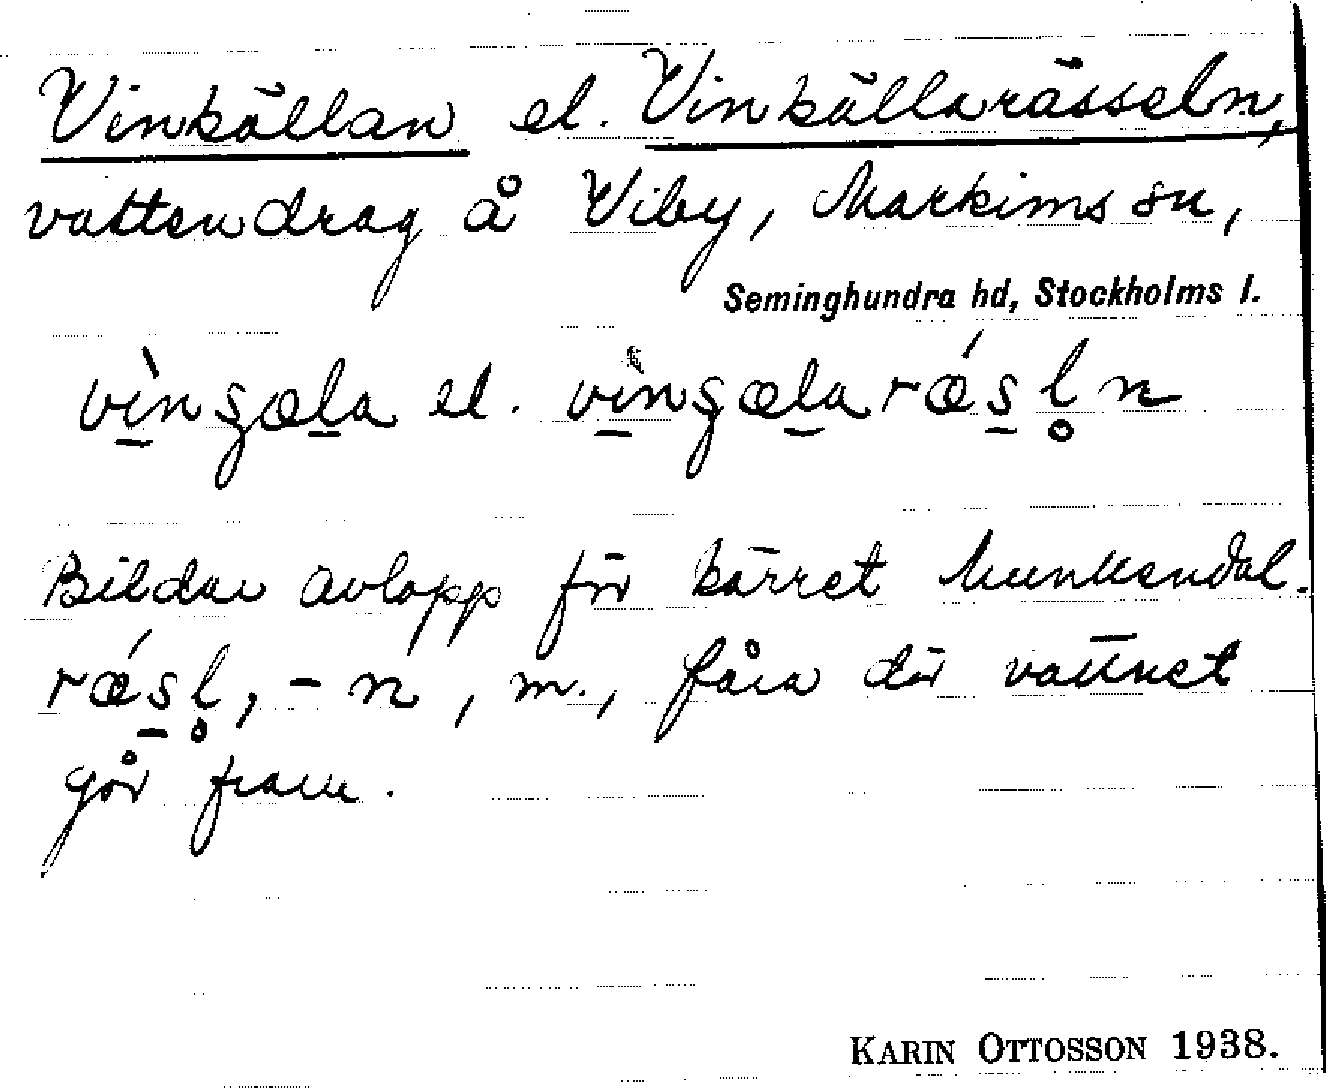 Vinkällan el. Vinkällarässeln,
vattendrag å Viby, Markims sn,
Seminghundra hd, Stockholms l.
el.
Bildar avlopp för kärret Munkendal.
-n, m., fåra där vattnet
går fram.
KARIN OTTOSSON 1938.